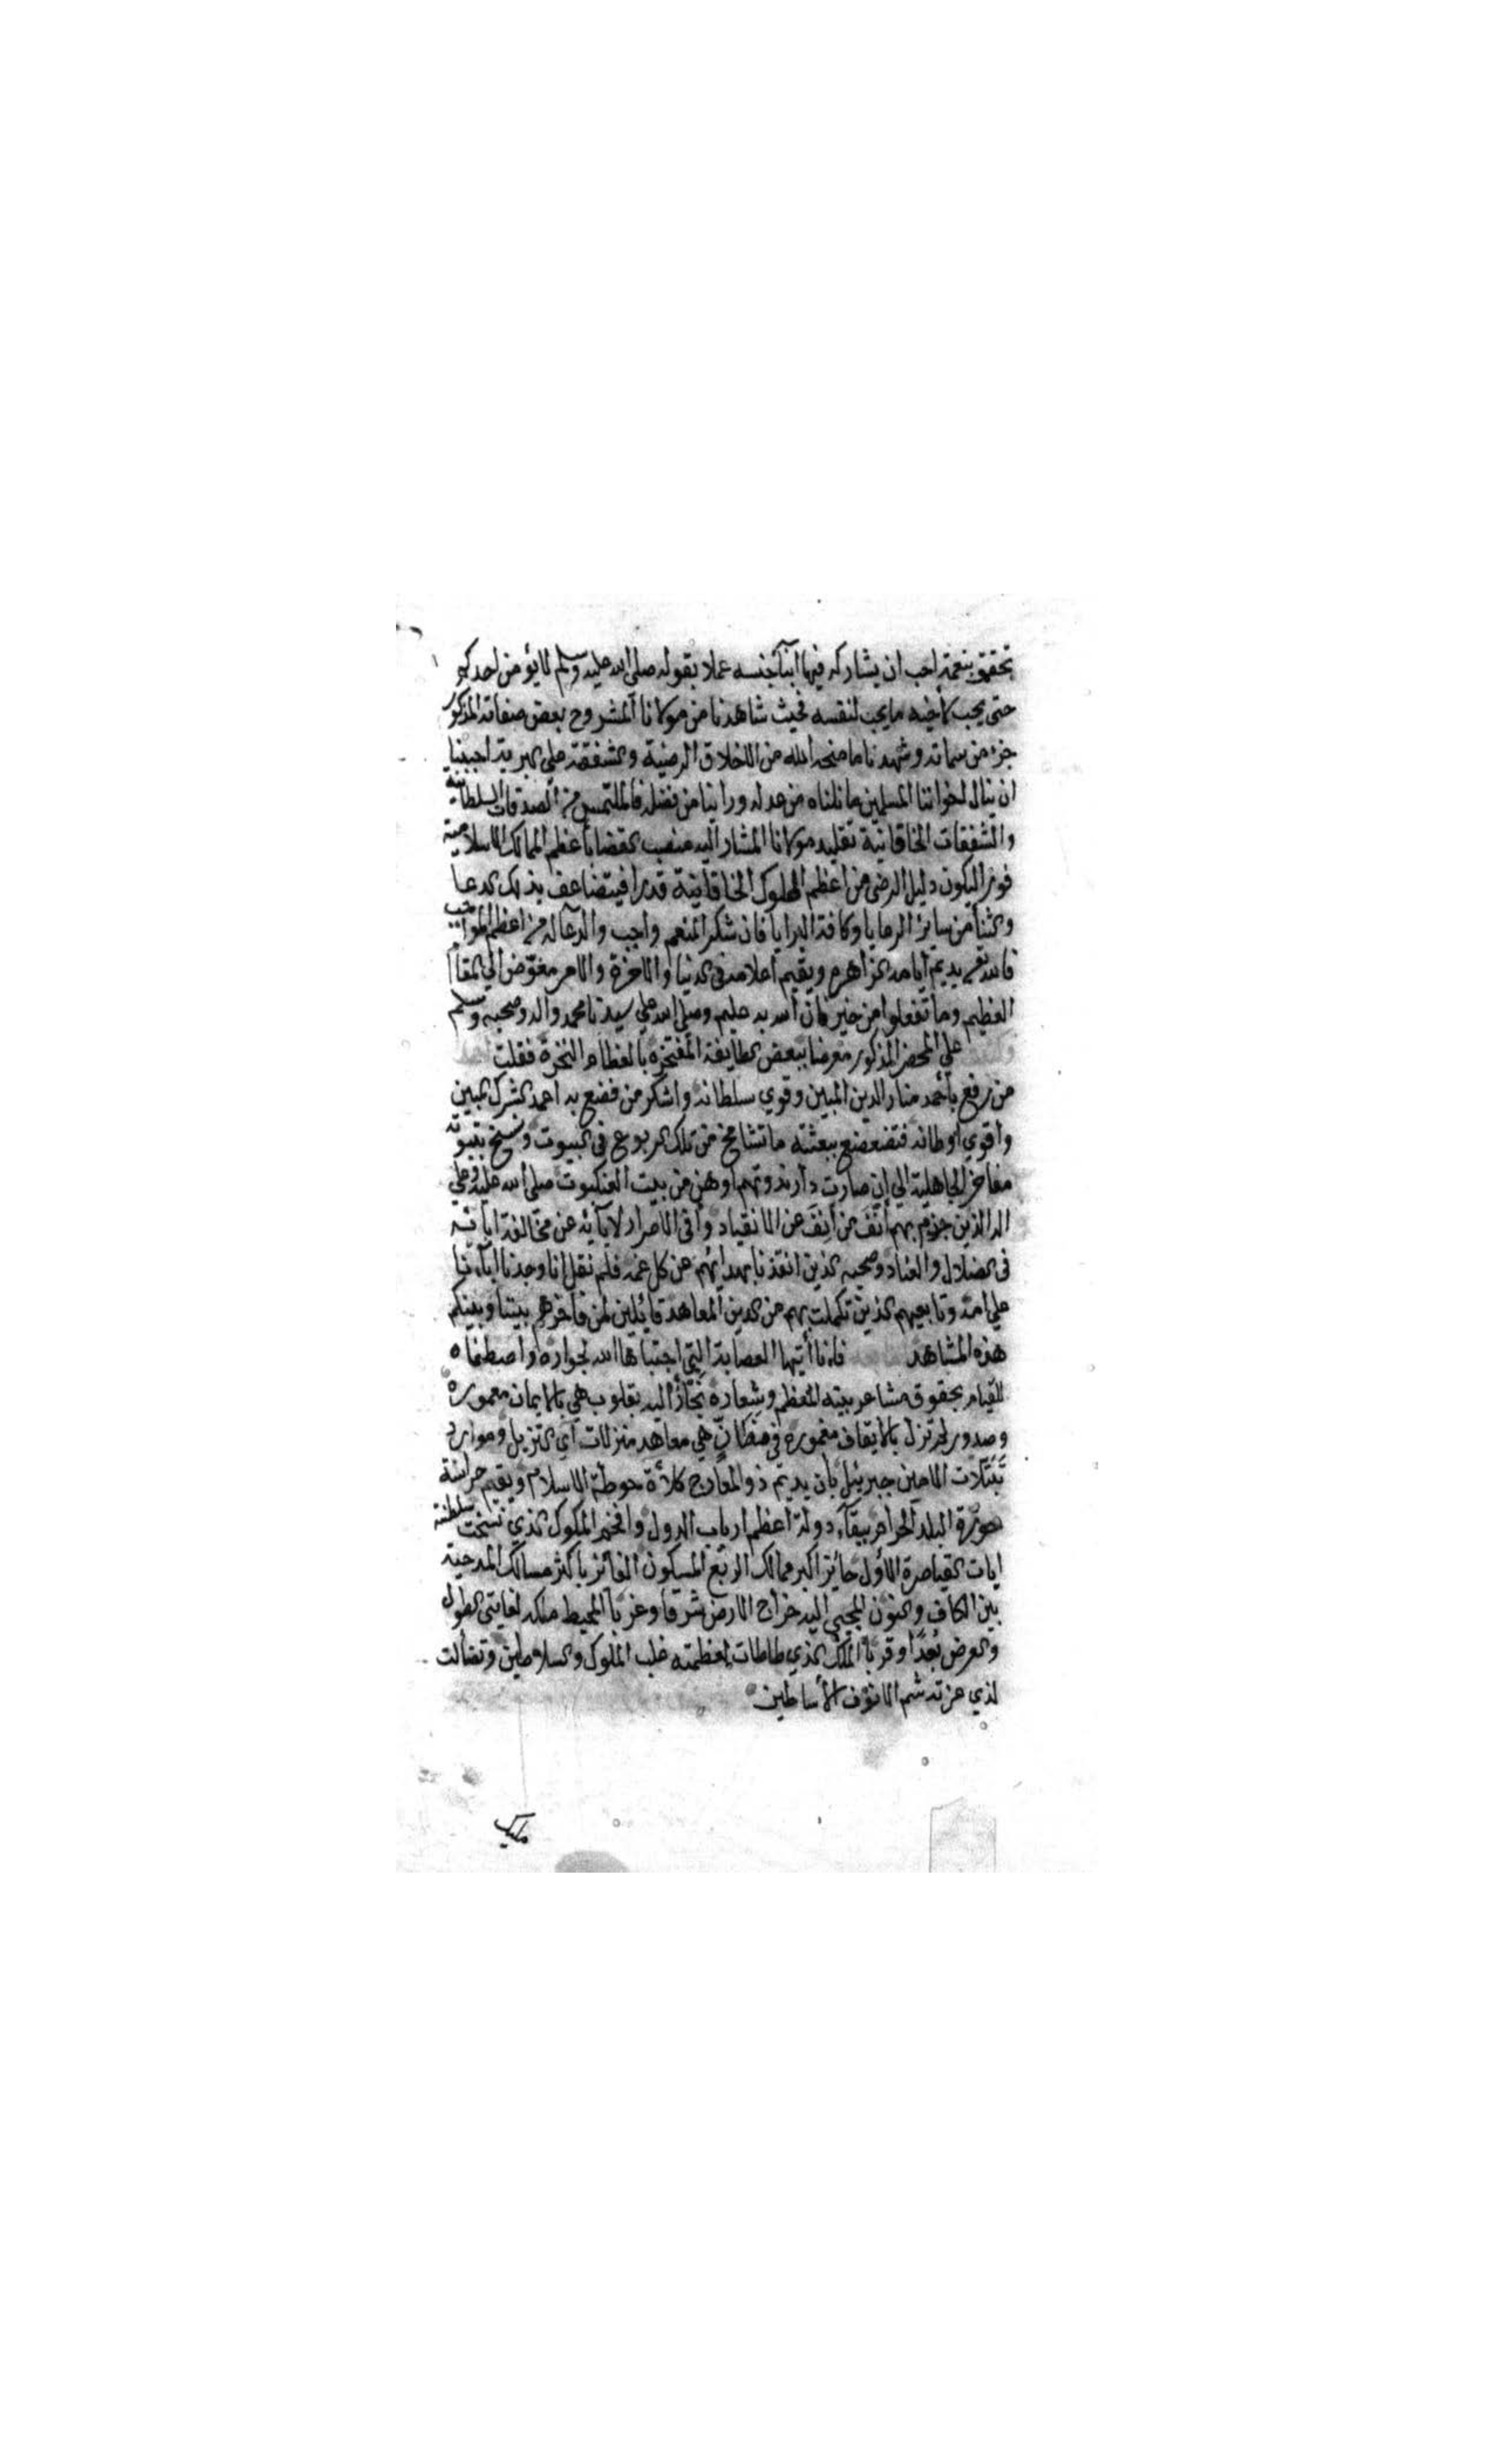 تحقق بنعمة احب ان يشاركه فيها ابنآجنسه عملا بقوله صلى الله عليه وسلم لا يؤمن احدكم
حتى يحب لأخيه ما يحب لنفسه فحيث شاهدنا من مولانا المشروح بعض صفاته المذكور
جزء من سماته وشهدنا ما منحه الله من الاخلاق الرضية والشفقة على البرية احببنا
ان ينال اخواننا المسلمين ما نلناه من عدله وراينا من فضله فالملتمس من الصدقات السلطانية
والشفقات الخاقانية تقليد مولانا المشار اليه منصب القضا باعظم الممالك الاسلامية
فورا ليكون دليل الرضى من اعظم الملوك الخاقانية قدرا فيتضاعف بذلك الدعا
والثنا من ساير الرعايا وكافة البرايا فان شكر المنعم واجب والدعآ له من اعظم المواجب
فالله تعالى يديم ايامه الزاهره ويقيم اعلامه في الدنيا والاخرة والامر مفوض الى المقام
العظيم وما تفعلوا من خير فان الله به عليم وصلى الله على سيدنا محمد واله وصحبه وسلم
على المحضر المذكور معرضا ببعض الطايفة المفتخرة بالعظام النخرة فقلت
من رفع بأحمد منار الدين المبين وقوي سلطانه واشكر من فضع به احمد الشرك المبين
واقوي اوطانه فتضعضع ببعثته ما تشامخ من تلك الربوع في البيوت ونسخ بنبوته
مفاخر الجاهلية الى ان صارت دار ندوتهم اوهن من بيت العنكبوت صلى الله عليه وعلى
اله الذين جزم بهم أنف من أنف عن الانقياد وافى الاصرار لابآئه عن مخالفة ابائه
في الضلال والعناد وصحبه الذين انقذنا بهدائهم من كل غمه فلم نقل انا وجدنا ابآءنا
على امة وتابعيهم الذين تكملت بهم من الدين المعاهد قائلين لمن فاخرهم بيننا وبينكم
هذه المشاهد فاننا أيتها العصابة التي اجتباها الله لجواره واصطفاه
للقيام بحقوق مشاعر بيته المعظم وشعاره نجأر اليه بقلوب هي بالايمان معموره
وصدور لم تزل بالايقان مغموره في مظانّ هي معاهد منزلات آي التنزيل وموارد
تنزلات الامين جبرئيل بأن يديم ذو المعارج كلأة حوطة الاسلام ويقيم حراسة
حوزة البلد الحرام ببقآء دولة اعظم ارباب الدول وافخم الملوك الذي نسخت سلطنته
ايات القياصرة الأول حائز اكبر ممالك الربع المسكون الفائز باكثر مسالك المدحية
بين الكاف والنون المجبي اليه خراج الارض شرقا وغربا المحيط ملكه لغايتي الطول
والعرض بُعدًا وقربا الملك الذي طاطات لعظمته غلب الملوك والسلاطين وتضألت
لذي عزته شم الانوف الأساطين